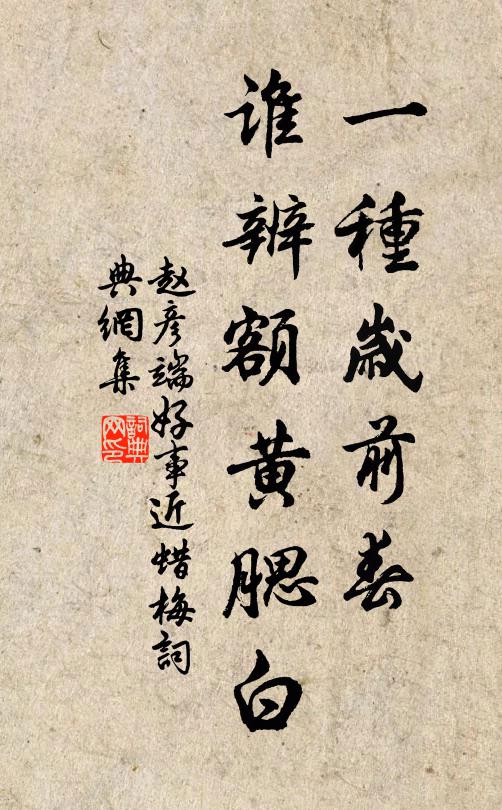 一種歲前春
谁辨額黄腮白
赵彦端好事近蜡梅詞
典網集
詞典网印